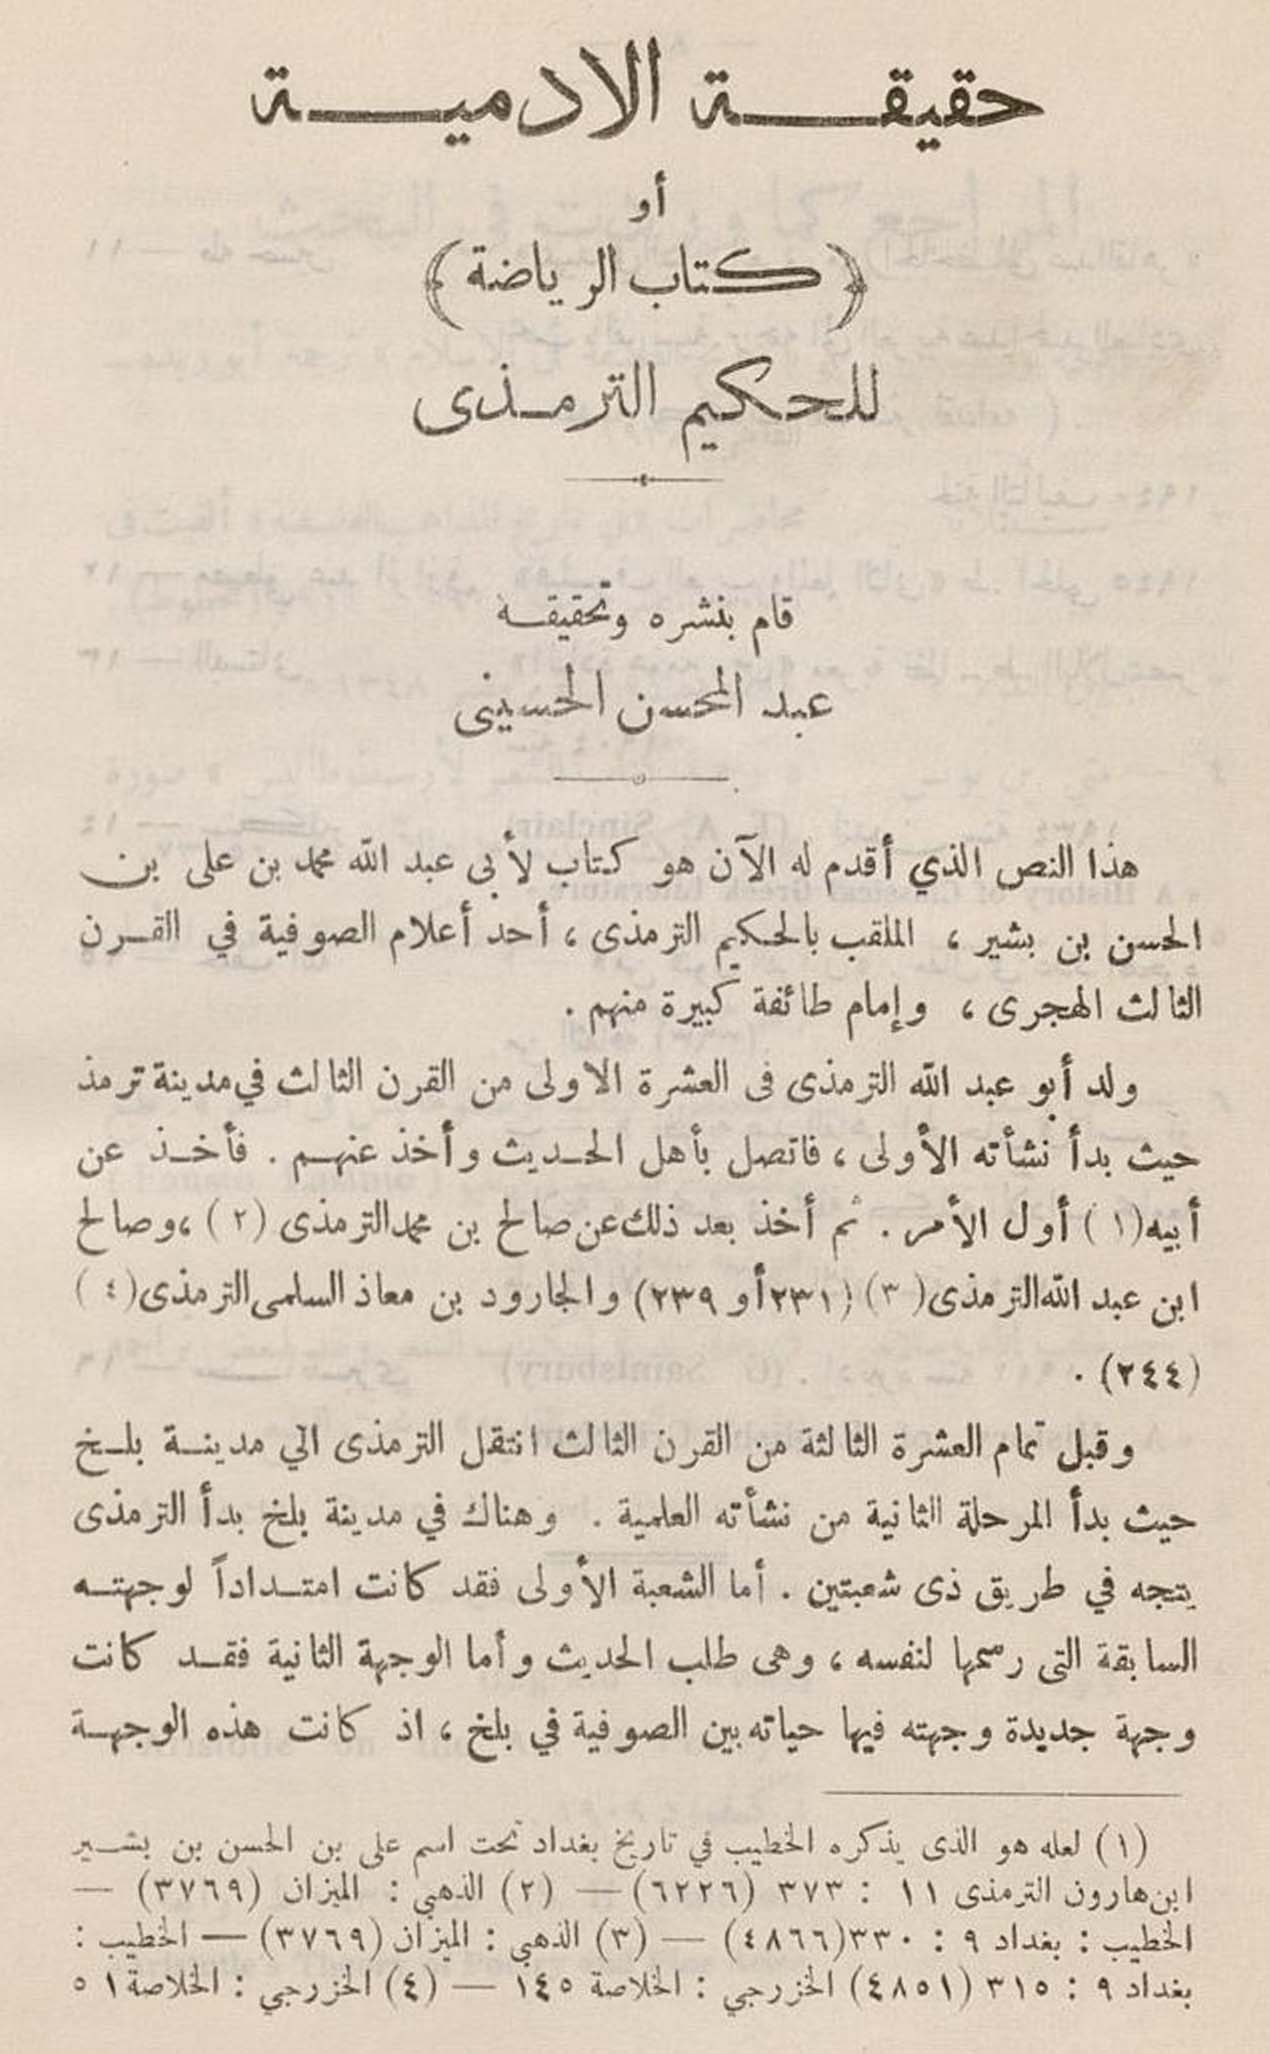 حقيقة الادمية
أو
﴿كتاب الرياضة﴾
للحكيم الترمذى
قام بنشره وتحقيقه
عبد المحسن الحسينى
هذا النص الذي أقدم له الآن هو كتاب لأبي عبد الله محمد بن على بن
الحسن بن بشير ، الملقب بالحكيم الترمذى ، أحد أعلام الصوفية في القرن
الثالث الهجرى ، وإمام طائفة كبيرة منهم .
ولد أبو عبد الله الترمذى فى العشرة الاولى من القرن الثالث في مدينة ترمذ
حيث بدأ نشأته الأولى ، فاتصل بأهل الحديث وأخذ عنهم . فأخذ عن
أبيه (١) أول الأمر . ثم أخذ بعد ذلك عن صالح بن محمد الترمذى (٢) ، وصالح
ابن عبد الله الترمذى (٣) (٢٣١ أو ٢٣٩) والجارود بن معاذ السلمى الترمذى (٤)
(٢٤٤) .
وقبل تمام العشرة الثالثة من القرن الثالث انتقل الترمذى الي مدينة بلخ
حيث بدأ المرحلة الثانية من نشأته العلمية . وهناك في مدينة بلخ بدأ الترمذى
يتجه في طريق ذى شعبتين . أما الشعبة الأولى فقد كانت امتداداً لوجهته
السابقة التى رسمها لنفسه ، وهى طلب الحديث وأما الوجهة الثانية فقد كانت
وجهة جديدة وجهته فيها حياته بين الصوفية في بلخ ، اذ كانت هذه الوجهة
(١) لعله هو الذى يذكره الخطيب في تاريخ بغداد تحت اسم على بن الحسن بن بشير
ابن هارون الترمذى ١١ : ٣٧٣ (٦٢٢٦) — (٢) الذهبي : الميزان (٣٧٦٩) —
الخطيب : بغداد ٩ : ٣٣٠ (٤٨٦٦) — (٣) الذهبي : الميزان (٣٧٦٩) — الخطيب :
بغداد ٩ : ٣١٥ (٤٨٥١) الخزرجي : الخلاصة ١٤٥ — (٤) الخزرجي : الخلاصة ٥١